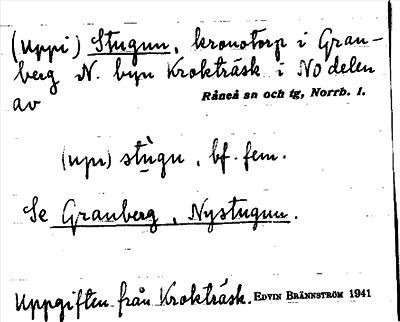 (Uppi) Stugun, kronotorp i Gran-
berg N. byn Krokträsk i NO delen
av
Råneå sn och tg, Norrb. l.
(upi) stùgu, bf. fem.
Se Granberg, Nystugun.
Uppgiften från Krokträsk. EDVIN BRÄNNSTRÖM 1941